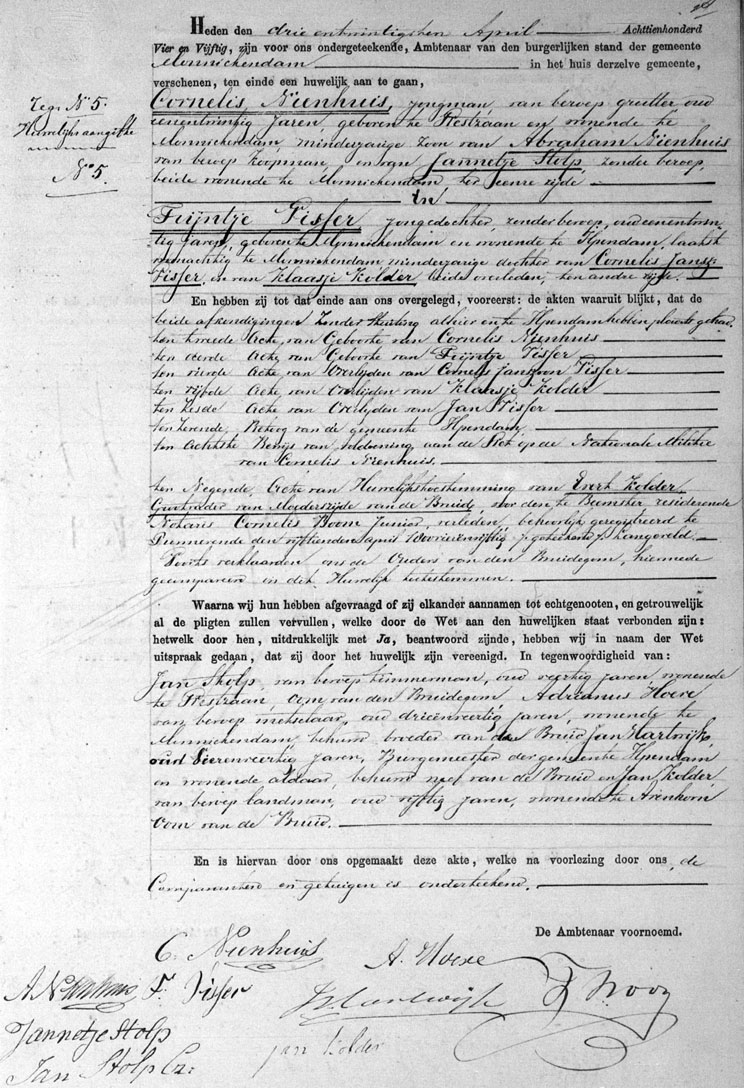 Heden den drie en twintigsten April Achttienhonderd
Vier en Vijftig, zijn voor ons ondergeteekende, Ambtenaar van den burgerlijken stand der gemeente
Monnickendam in het huis derzelve gemeente,
verschenen, ten einde een huwelijk aan te gaan,
Cornelis Nienhuis, jongman, van beroep grutter oud
eenentwintig Jaren, geboren te en wonende te
Monnickendam, minderjarige zoon van Abraham Nienhuis
van beroep koopman, en van Jannetje Stolp, zonder beroep,
beide wonende te Monnickendam ter eenre zijde
En
Trijntje Visser jongedochter, zonder beroep, oud eenentwin
tig jaren, geboren te Monnickendam en wonende te Ilpendam, laatst
woonachtig te Monnickendam minderjarige dochter van Cornelis Jansz:
Visser, en van Klaasje Kolder, beide overleden, ten andre zijde.
En hebben zij tot dat einde aan ons overgelegd, vooreerst: de akten waaruit blijkt, dat de
beide afkondigingen zonder stuiting alhier en te Ilpendam hebben plaats gehad.
ten tweede Acte van Geboorte van Cornelis Nienhuis
ten derde Acte van Geboorte van Trijntje Visser
ten vierde Acte van Overlyden van Cornelis Janszoon Visser
ten vijfde Acte van Overlijden van Klaasje Kolder
ten zesde Acte van Overlyden van Jan Visser
ten zevende, Betoog van de gemeente Ilpendam
ten Achtste Bewijs van voldoening aan de Wet op de Nationale Militie
van Cornelis Nienhuis.
ten Negende, Acte van Huwelijkstoestemming van Evert Kolder,
Grootvader van Moederszijde van de Bruid, voor den te Beemster, resideerende
Notaris Cornelis Boom Junior, verleden, behoorlijk geregistreerd te
Purmerende den vijftienden april
Voorts verklaarden ons de Ouders van den Bruidegom, hiermede
gecompareerd in dit Huwelijk toetestemmen.
Waarna wij hun hebben afgevraagd of zij elkander aannamen tot echtgenooten, en getrouwelijk
al de pligten zullen vervullen, welke door de Wet aan den huwelijken staat verbonden zijn:
hetwelk door hen, uitdrukkelijk met Ja, beantwoord zijnde, hebben wij in naam der Wet
uitspraak gedaan, dat zij door het huwelijk zijn vereenigd. In tegenwoordigheid van:
Jan Stolp, van beroep timmerman, oud veertig jaren wonende
te Oom van den Bruidegom Adrianus Hoeve
van beroep metselaar, oud drieenveertig jaren, wonende te
Monnickendam, behuwd broeder van de Bruid Jan Hartwijk,
oud Vierenveertig jaren, Burgemeester der gemeente Ilpendam
en wonende aldaar, behuwd neef van de Bruid en Jan Kolder,
van beroep landman, oud vijftig jaren, wonende te Avenhorn
Oom van de Bruid.
En is hiervan door ons opgemaakt deze akte, welke na voorlezing door ons, de
Comparanten en getuigen is onderteekend.
De Ambtenaar voornoemd.
C. Nienhuis
A. Hoeve
A Nienhuis
T. Visser
J. Hartwijk
Jannetje Stolp
Jan Stolp Cz:
Jan Kolder
No 5.
Huwelijks aangifte
No 5.